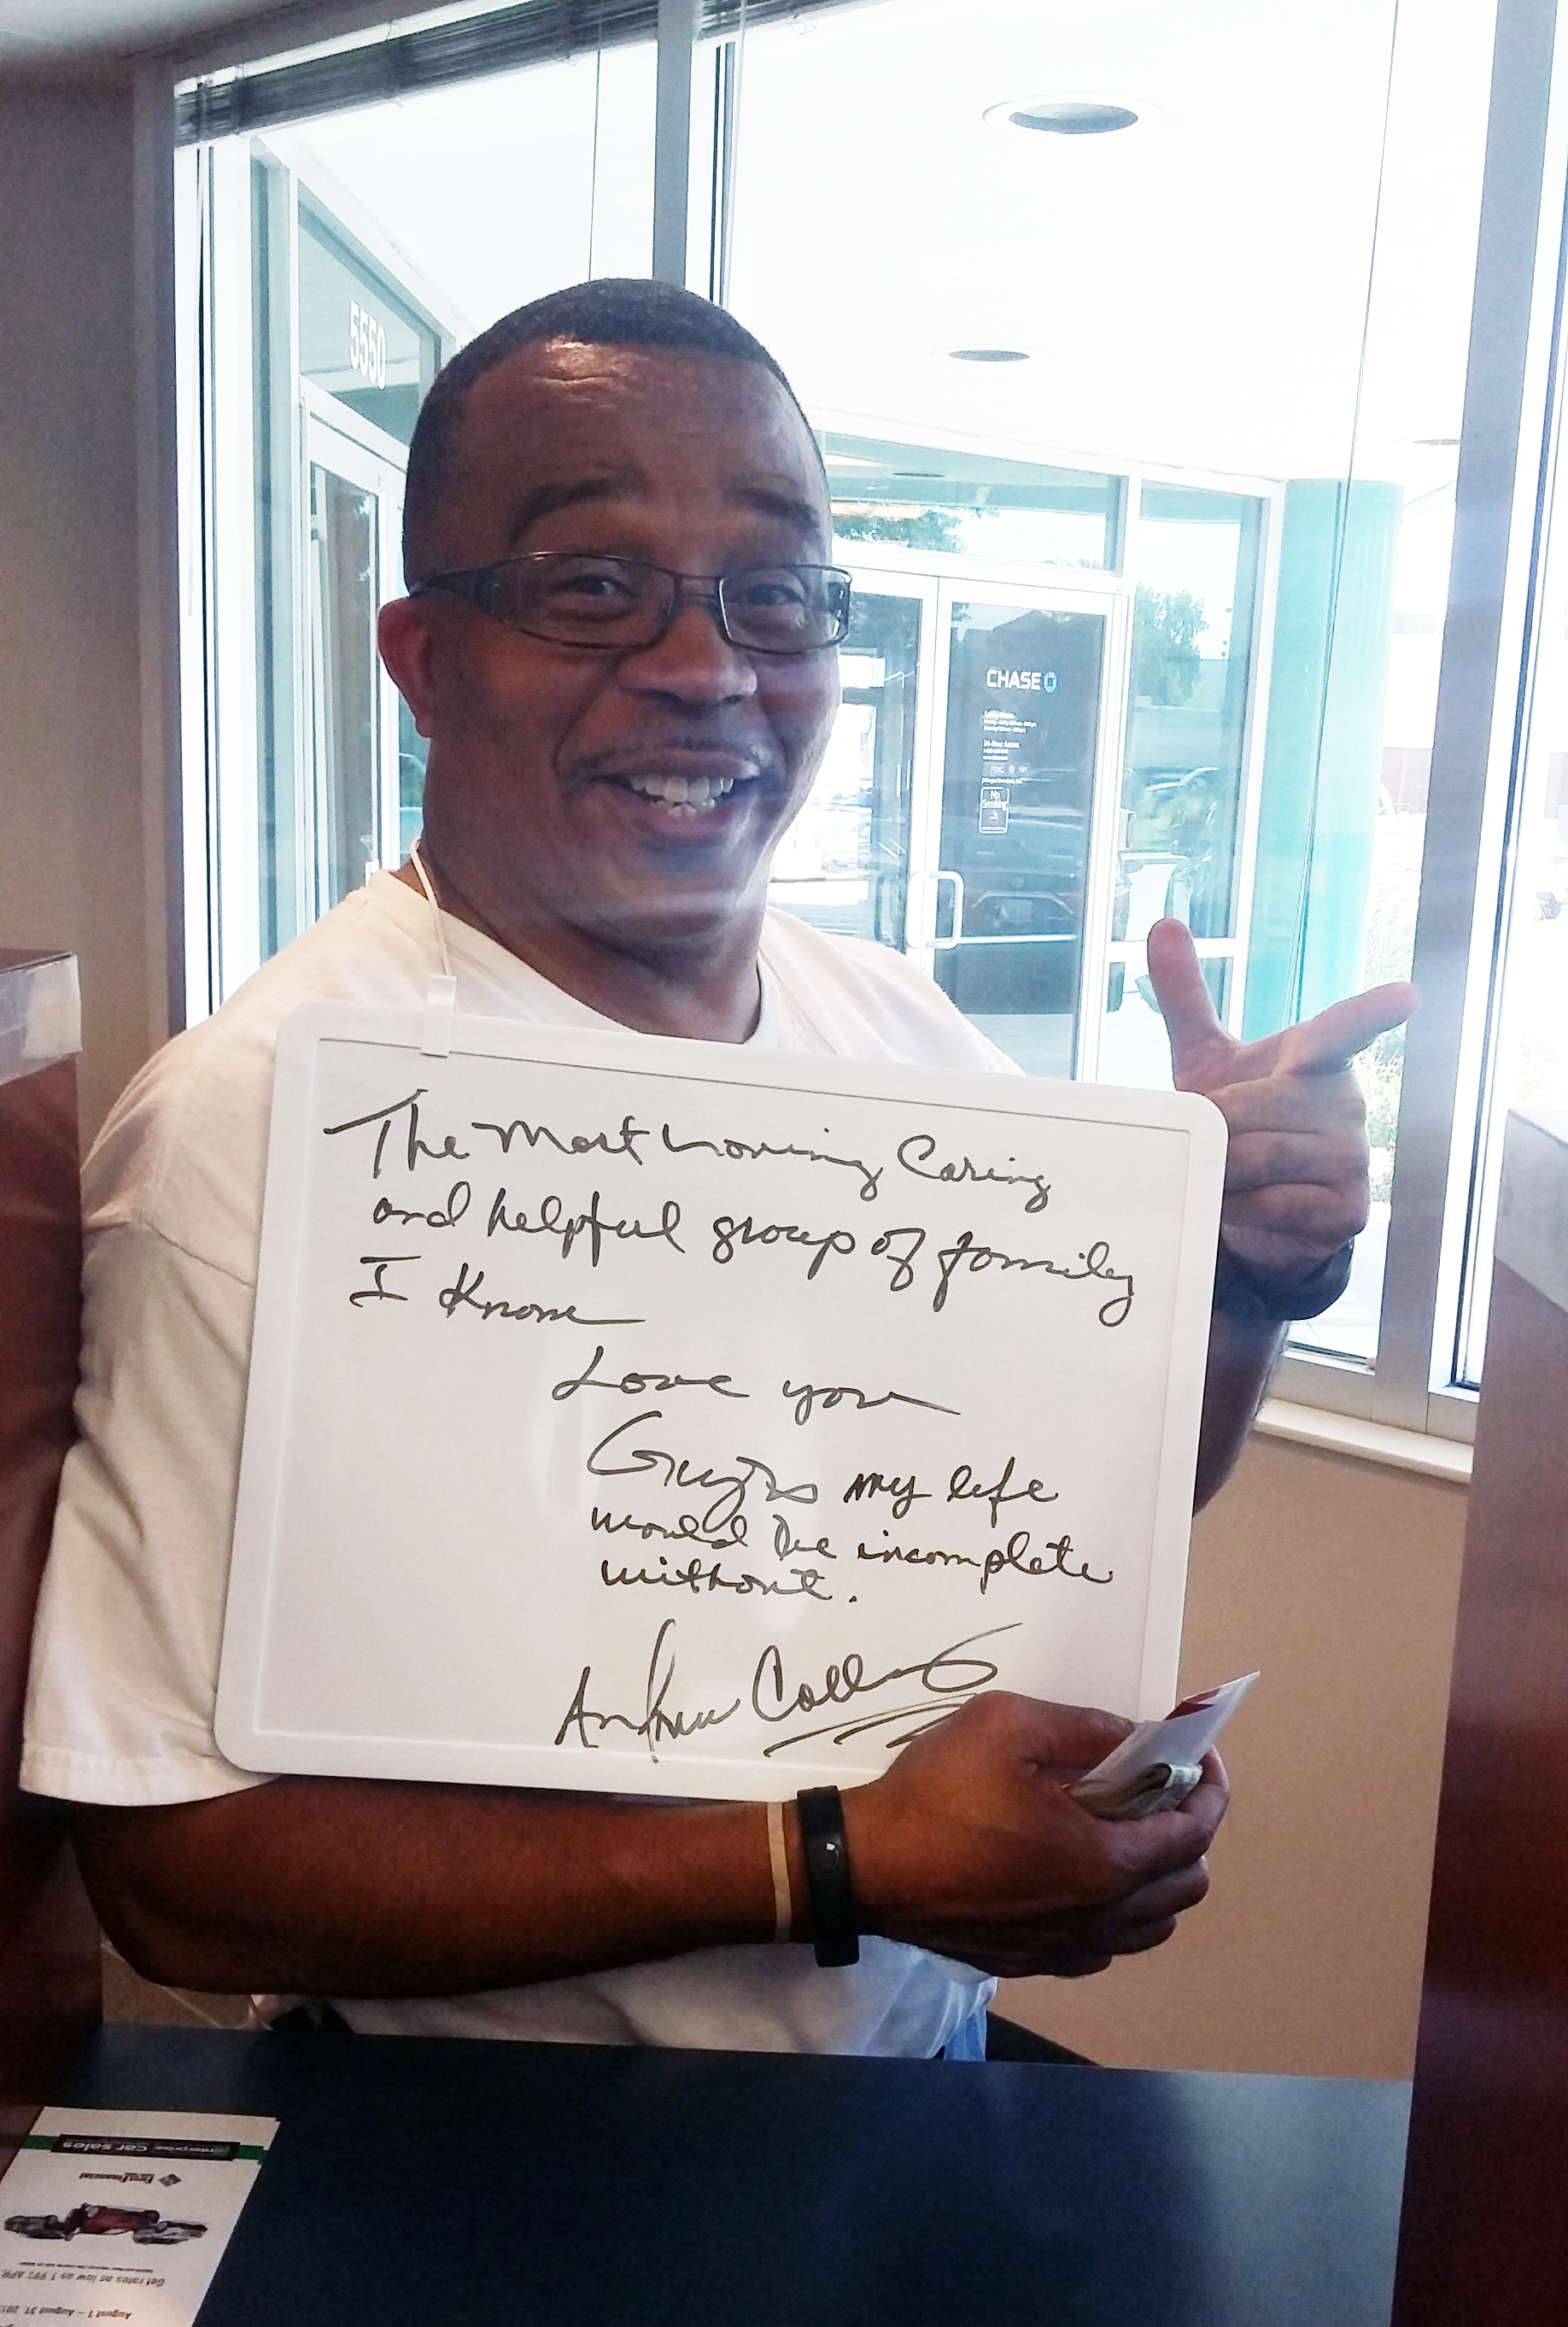 5550
CHASE
No
Smoking
The Most Loving Caring
and helpful group of family
I Know
Love you
Guys my life
would be incomplete
without.
Andrew Collins
enterprise car sales
First Financial
Get rates as low as 1.99% APR
August 1 – August 31, 201